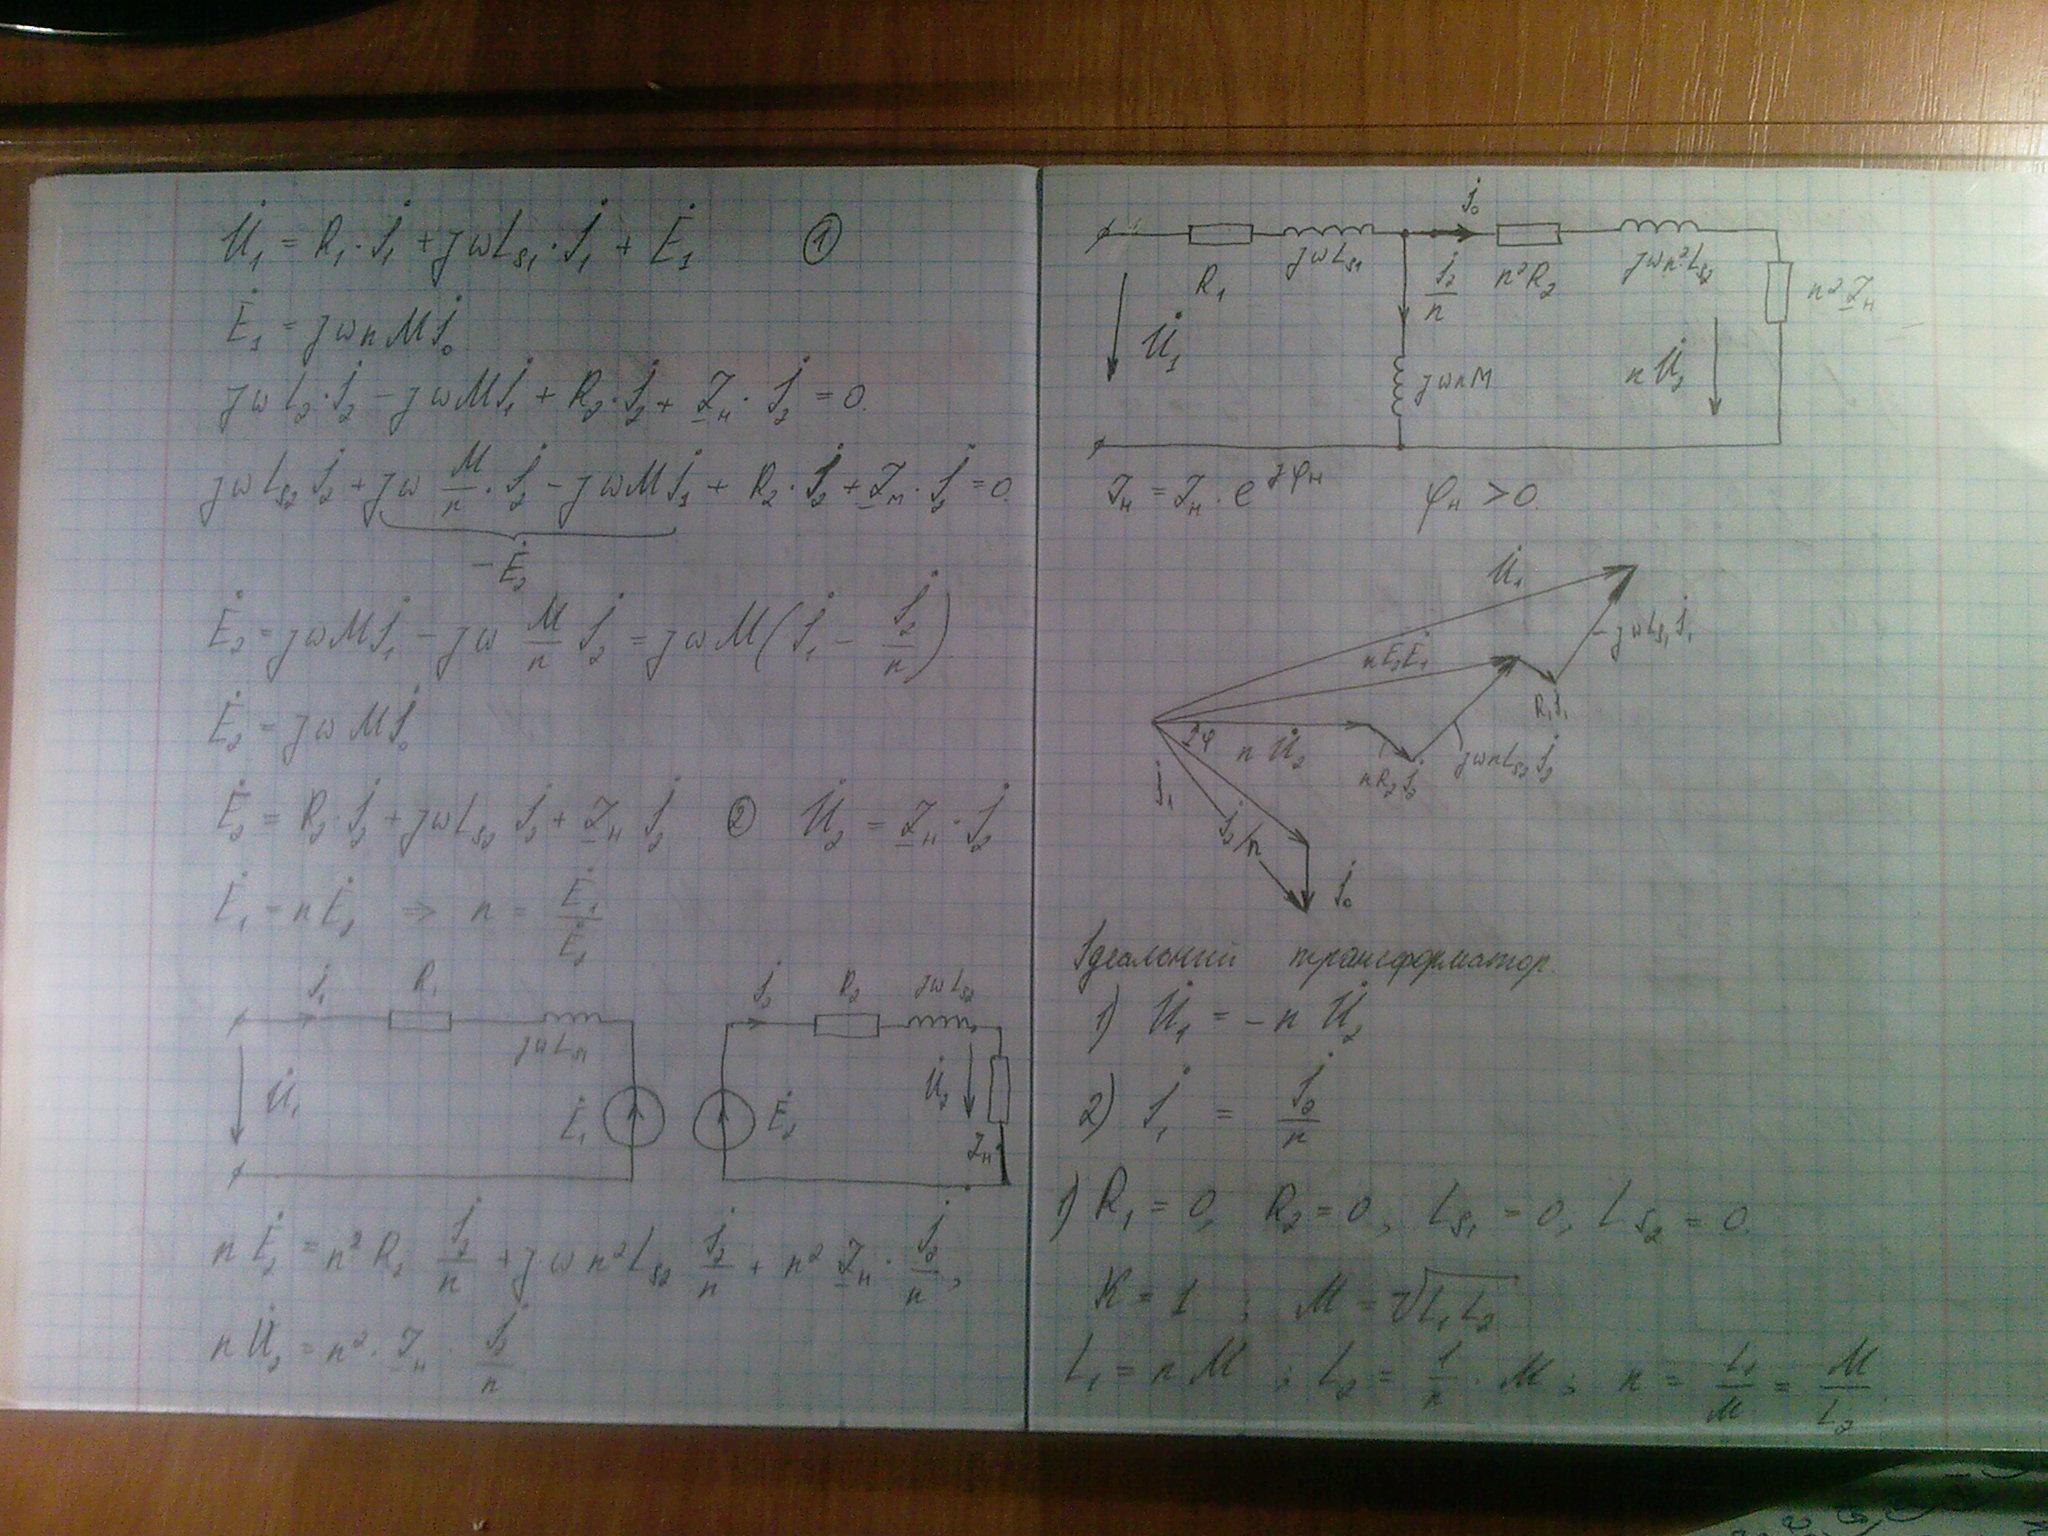 U̇₁ = R₁·İ₁ + jωL_S1·İ₁ + Ė₁ ①
Ė₁ = jωnMİ₀
jωL₂·İ₂ − jωMİ₁ + R₂·İ₂ + Z_н·İ₂ = 0.
jωL_S2 İ₂ + jω M/n·İ₂ − jωMİ₁ + R₂·İ₂ + Z_н·İ₂ = 0.
−Ė₂
Ė₂ = jωMİ₁ − jω M/n İ₂ = jωM(İ₁ − İ₂/n)
Ė₂ = jωMİ₀
Ė₂ = R₂·İ₂ + jωL_S2 İ₂ + Z_н İ₂ ② U̇₂ = Z_н·İ₂
Ė₁ = nĖ₂ ⇒ n = Ė₁/Ė₂
İ₁ R₁ jωL_S1 U̇₁ Ė₁
İ₂ R₂ jωL_S2 Ė₂ U̇₂ Z_н
nĖ₂ = n²R₂ İ₂/n + jωn²L_S2 İ₂/n + n² Z_н·İ₂/n,
nU̇₂ = n²·Z_н·İ₂/n
R₁ jωL_S1 İ₀ İ₂/n n²R₂ jωn²L_S2 n²Z_н
U̇₁ jωnM nU̇₂
Z_н = Z_н·e^jφн φ_н > 0.
U̇₁
nĖ₂Ė₁ jωL_S1İ₁
R₁İ₁
φ nU̇₂ nR₂İ₂ jωnL_S2İ₂
İ₁
İ₂/n
İ₀
Ідеальний трансформатор.
1) U̇₁ = −nU̇₂
2) İ₁ = İ₂/n
1) R₁ = 0, R₂ = 0, L_S1 = 0, L_S2 = 0.
K = 1 ; M = √L₁L₂
L₁ = nM ; L₂ = 1/n·M ; n = L₁/M = M/L₂.